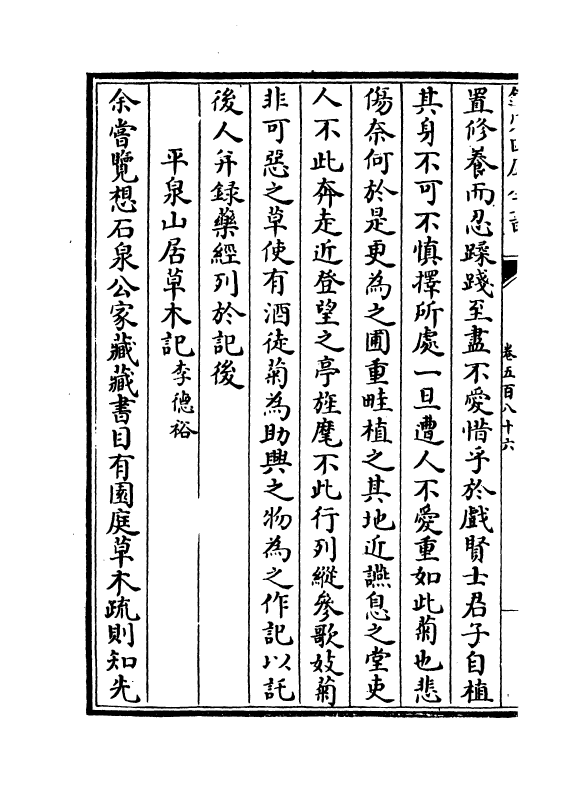 卷五百八十六
置修養而忍蹂踐至盡不愛惜乎於戲賢士君子自植
其身不可不慎擇所處一旦遭人不愛重如此菊也悲
傷奈何於是更為之圃重畦植之其地近讌息之堂吏
人不此奔走近登望之亭旌麾不此行列縱參歌妓菊
非可惡之草使有酒徒菊為助興之物為之作記以託
後人并録藥經列於記後
平泉山居草木記李德裕
余嘗覽想石泉公家藏藏書目有園庭草木疏則知先